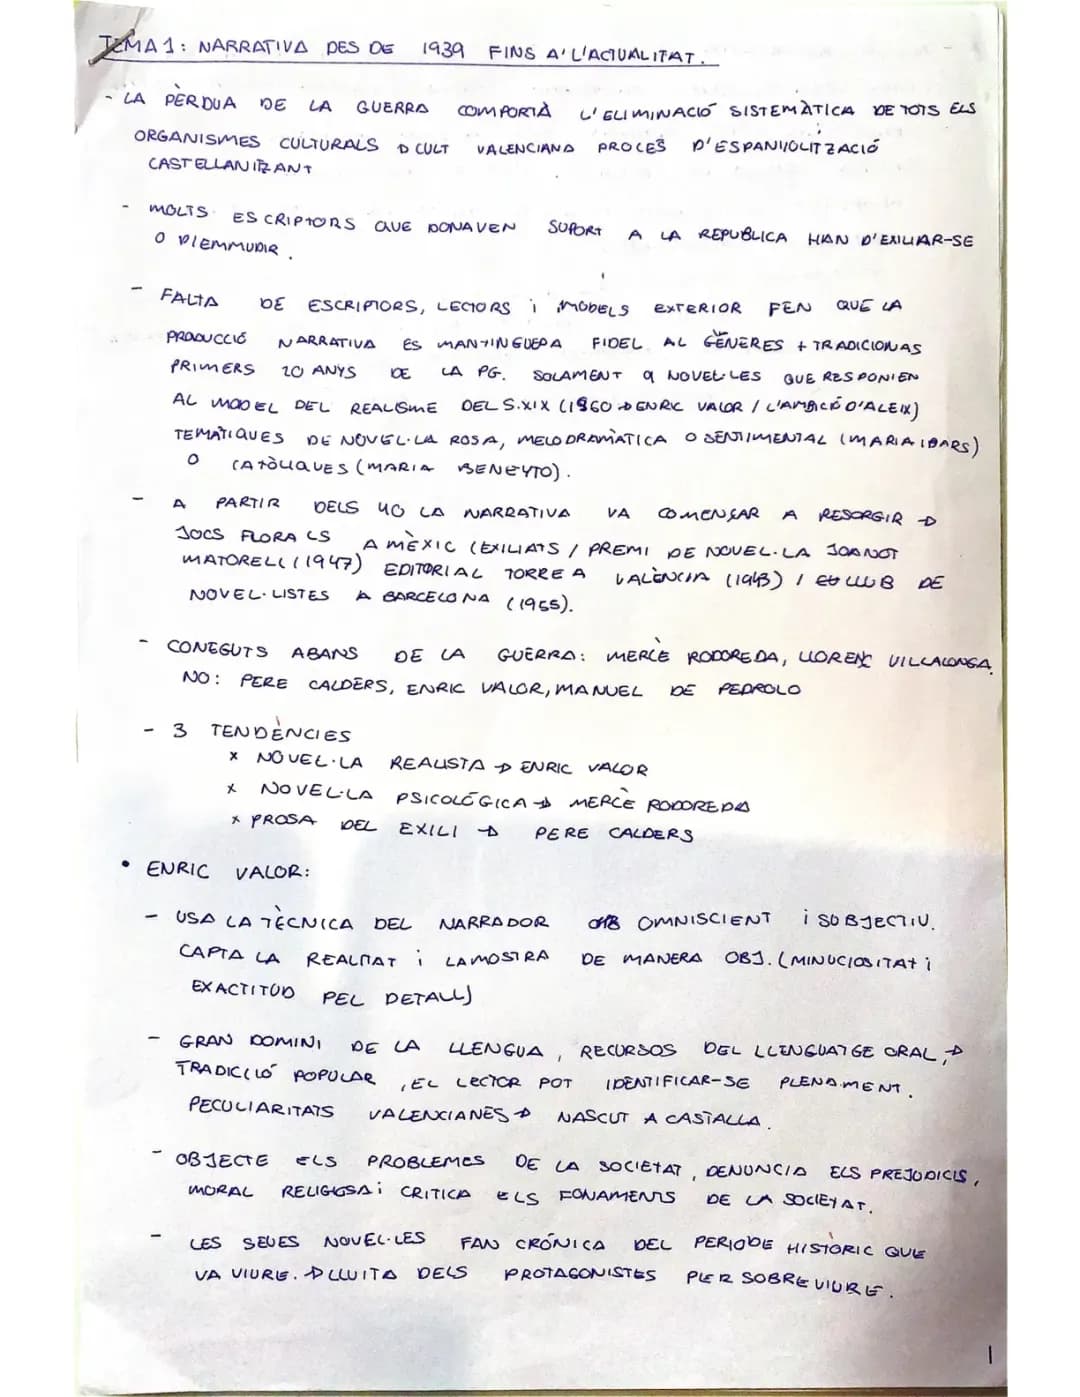 TEMA 1: NARRATIVA DES DE 1939 FINS A L'ACTUALITAT.
- LA PÈRDUA DE LA GUERRA COMPORTÀ L'ELIMINACIÓ SISTEMÀTICA DE TOTS ELS
ORGANISMES CULTURALS → CULT VALENCIANA PROCÉS D'ESPANYOLITZACIÓ
CASTELLANITZANT
- MOLTS ESCRIPTORS QUE DONAVEN SUPORT A LA REPUBLICA HAN D'EXILIAR-SE
O D'EMMUDIR.
- FALTA DE ESCRIPTORS, LECTORS i MODELS EXTERIOR FEN QUE LA
PRODUCCIÓ NARRATIVA ÉS MANTINGUERA FIDEL AL GÈNERES + TRADICIONAS
PRIMERS 20 ANYS DE LA PG. SOLAMENT 9 NOVEL·LES QUE RESPONIEN
AL MODEL DEL REALISME DEL S.XIX (1960 → ENRIC VALOR / L'AMBICIÓ D'ALEIX)
TEMÀTIQUES DE NOVEL·LA ROSA, MELODRAMÀTICA O SENTIMENTAL (MARIA IBARS)
O CATÒLIQUES (MARIA BENEYTO).
- A PARTIR DELS 40 LA NARRATIVA VA COMENÇAR A RESORGIR →
JOCS FLORALS A MÈXIC (EXILIATS / PREMI DE NOVEL·LA JOANOT
MATORELL (1947) EDITORIAL TORRE A VALÈNCIA (1943) / CLUB DE
NOVEL·LISTES A BARCELONA (1955).
- CONEGUTS ABANS DE LA GUERRA: MERCÈ RODOREDA, LLORENÇ VILLALONGA.
NO: PERE CALDERS, ENRIC VALOR, MANUEL DE PEDROLO
- 3 TENDÈNCIES
x NOVEL·LA REALISTA → ENRIC VALOR
x NOVEL·LA PSICOLÒGICA → MERCÈ RODOREDA
x PROSA DEL EXILI → PERE CALDERS
• ENRIC VALOR:
- USA LA TÈCNICA DEL NARRADOR OMNISCIENT i SOBJECTIU.
CAPTA LA REALITAT i LA MOSTRA DE MANERA OBJ. (MINUCIOSITAT i
EXACTITUD PEL DETALL)
- GRAN DOMINI DE LA LLENGUA, RECURSOS DEL LLENGUATGE ORAL, →
TRADICCIÓ POPULAR, EL LECTOR POT IDENTIFICAR-SE PLENAMENT.
PECULIARITATS VALENCIANES → NASCUT A CASTALLA.
- OBJECTE ELS PROBLEMES DE LA SOCIETAT, DENUNCIA ELS PREJUDICIS,
MORAL RELIGIOSA i CRITICA ELS FONAMENTS DE LA SOCIETAT.
- LES SEUES NOVEL·LES FAN CRÓNICA DEL PERIODE HISTÒRIC QUE
VA VIURE. → LLUITA DELS PROTAGONISTES PER SOBREVIURE.
1